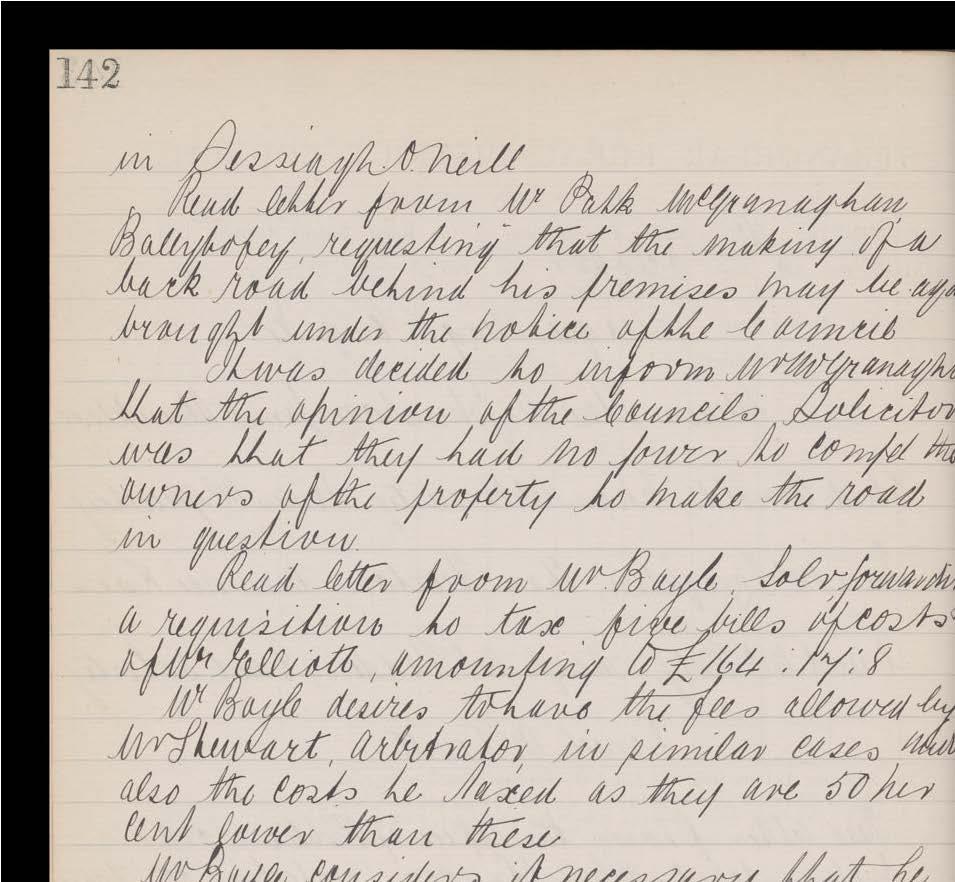 142
in Sessiagh O.Neill
Read letter from Mr Patk McGranaghan,
Ballybofey, requesting that the making of a
back road behind his premises may be aga
brought under the notice of the Council
It was decided to inform Mr McGranagh
that the opinion of the Councils Solicitor
was that they had no power to compel the
owners of the property to make the road
in question.
Read letter from Mr Boyle, Solr, forwardin
a requisition to tax five bills of costs
of Mr Elliott, amounting to £164:17:8
Mr Boyle desires to have the fees allowed by
Mr Stewart, Arbitrator, in similar cases
also the costs he taxed as they are 50 per
cent lower than these
Mr Boyle considers it necessary that he